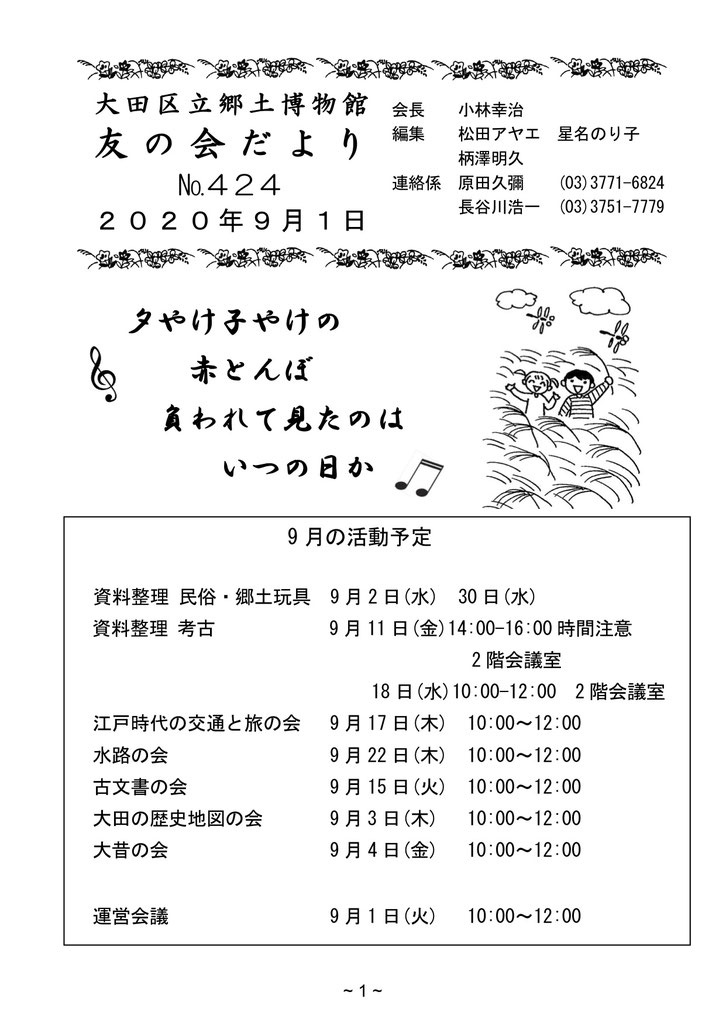 大田区立郷土博物館
友の会だより
№424
2020年9月1日
会長 小林幸治
編集 松田アヤエ 星名のり子
柄澤明久
連絡係 原田久彌 (03)3771-6824
長谷川浩一 (03)3751-7779
夕やけ子やけの
赤とんぼ
負われて見たのは
いつの日か
9月の活動予定
資料整理 民俗・郷土玩具 9月2日(水) 30日(水)
資料整理 考古 9月11日(金)14:00-16:00時間注意
2階会議室
18日(水)10:00-12:00 2階会議室
江戸時代の交通と旅の会 9月17日(木) 10:00～12:00
水路の会 9月22日(木) 10:00～12:00
古文書の会 9月15日(火) 10:00～12:00
大田の歴史地図の会 9月3日(木) 10:00～12:00
大昔の会 9月4日(金) 10:00～12:00
運営会議 9月1日(火) 10:00～12:00
~1~